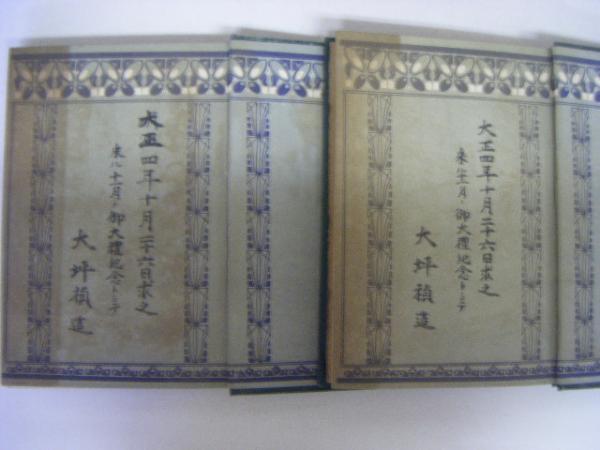 大正四年十月二十六日求之
来ル十一月ノ御大禮紀念トシテ
大坪禎造
大正四年十月二十六日求之
来ル十一月ノ御大禮紀念トシテ
大坪禎造